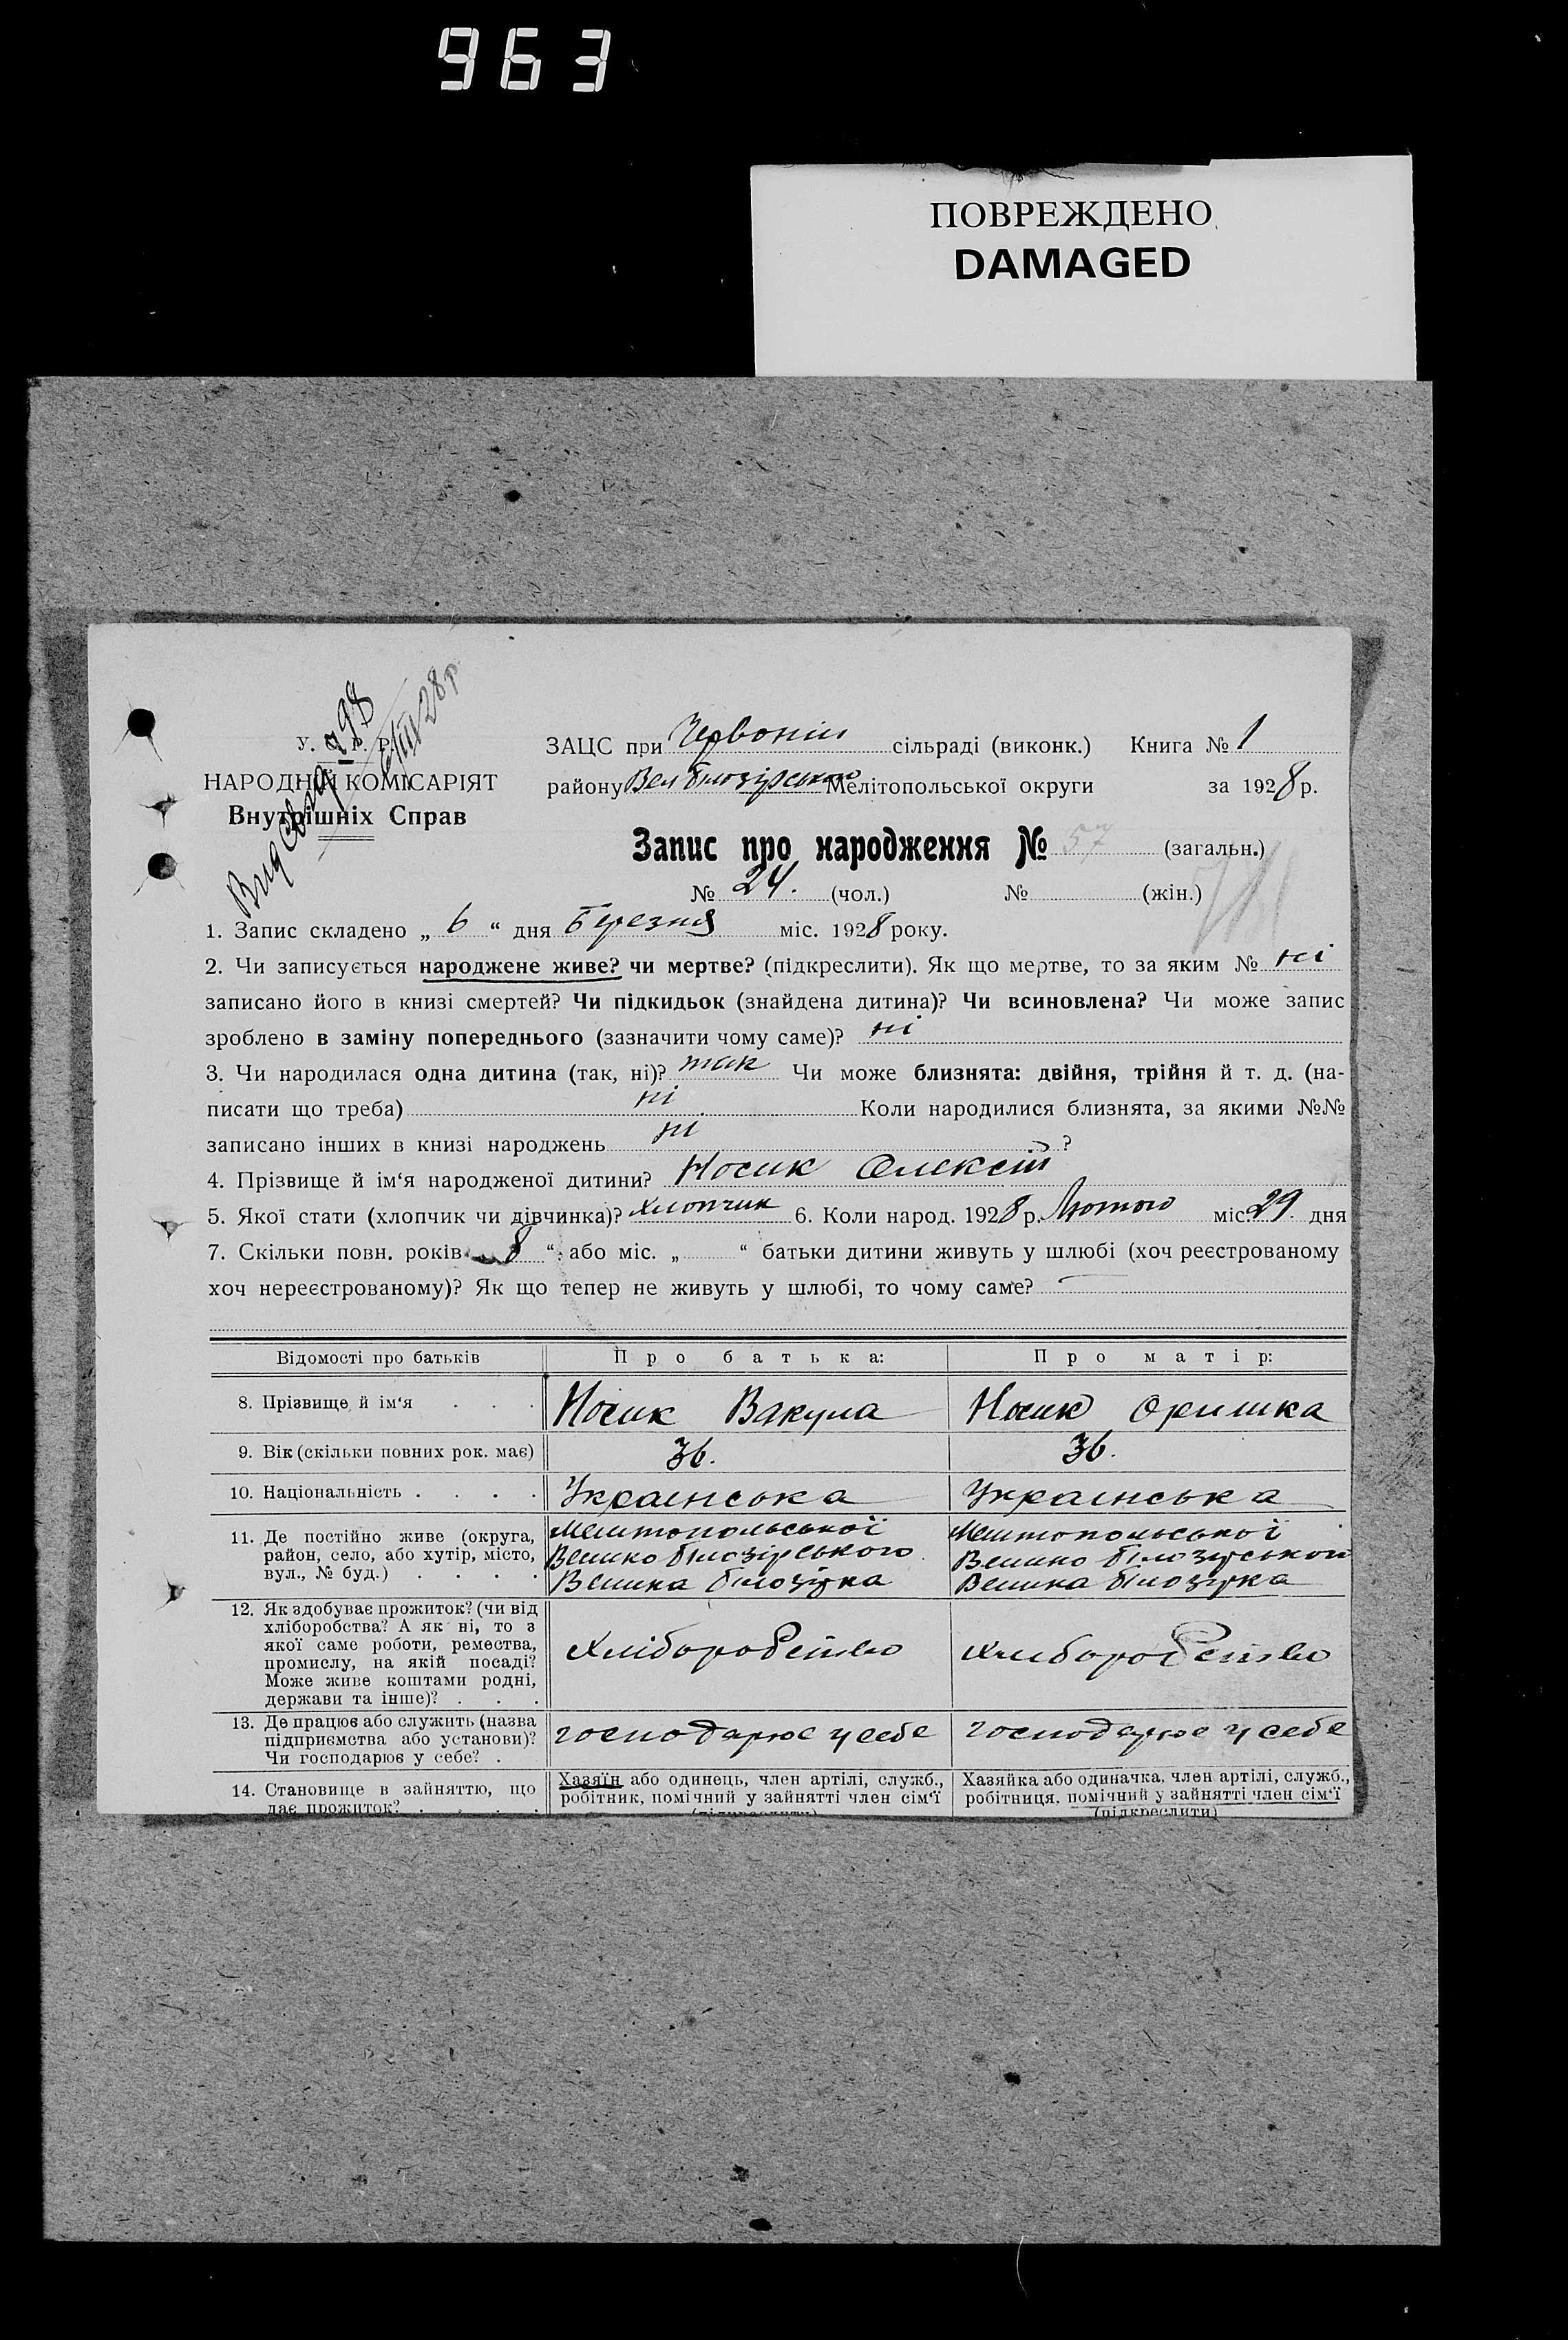 963
ПОВРЕЖДЕНО
DAMAGED
Вид Свид 798
6/III 28 р
У. С. Р. Р.
НАРОДНІЙ КОМІСАРІЯТ
Внутрішніх Справ
ЗАЦС при Червоній сільраді (виконк.) Книга № 1
району Вел Білозірського Мелітопольської округи за 1928 р.
Запис про народження № 57 (загальн.)
№ 24. (чол.) № (жін.)
1. Запис складено „ 6 “ дня Березня міс. 1928 року.
2. Чи записується народжене живе? чи мертве? (підкреслити). Як що мертве, то за яким № ні
записано його в книзі смертей? Чи підкидьок (знайдена дитина)? Чи всиновлена? Чи може запис
зроблено в заміну попереднього (зазначити чому саме)? ні
3. Чи народилася одна дитина (так, ні)? так Чи може близнята: двійня, трійня й т. д. (на-
писати що треба) ні Коли народилися близнята, за якими №№
записано інших в книзі народжень ні ?
4. Прізвище й ім‘я народженої дитини? Носик Олексій
5. Якої стати (хлопчик чи дівчинка)? хлопчик 6. Коли народ. 1928 р. Лютого міс. 29 дня
7. Скільки повн. років „ 8 “ або міс. „ “ батьки дитини живуть у шлюбі (хоч реєстрованому
хоч нереєстрованому)? Як що тепер не живуть у шлюбі, то чому саме?
Відомості про батьків Про батька: Про матір:
8. Прізвище й ім‘я . . . Носик Вакула Носик Оришка
9. Вік (скільки повних рок. має) 36. 36.
10. Національність . . . . Українська Українська
11. Де постійно живе (округа, район, село, або хутір, місто, вул., № буд.) . . . .
Мелітопольської
Велико білозірського
Велика білозірка
Мелітопольської
Велико білозірського
Велика білозірка
12. Як здобуває прожиток? (чи від
хліборобства? А як ні, то з
якої саме роботи, ремества,
промислу, на якій посаді?
Може живе коштами родні,
держави та інше)? . . .
Хліборобство Хліборобство
13. Де працює або служить (назва
підприємства або установи)?
Чи господарює у себе? .
господарює у себе господарює у себе
14. Становище в зайняттю, що
дає прожиток? . . . .
Хазяїн або одинець, член артілі, служб.,
робітник, помічний у зайнятті член сім‘ї
(підкреслити)
Хазяйка або одиначка, член артілі, служб.,
робітниця, помічний у зайнятті член сім‘ї
(підкреслити)